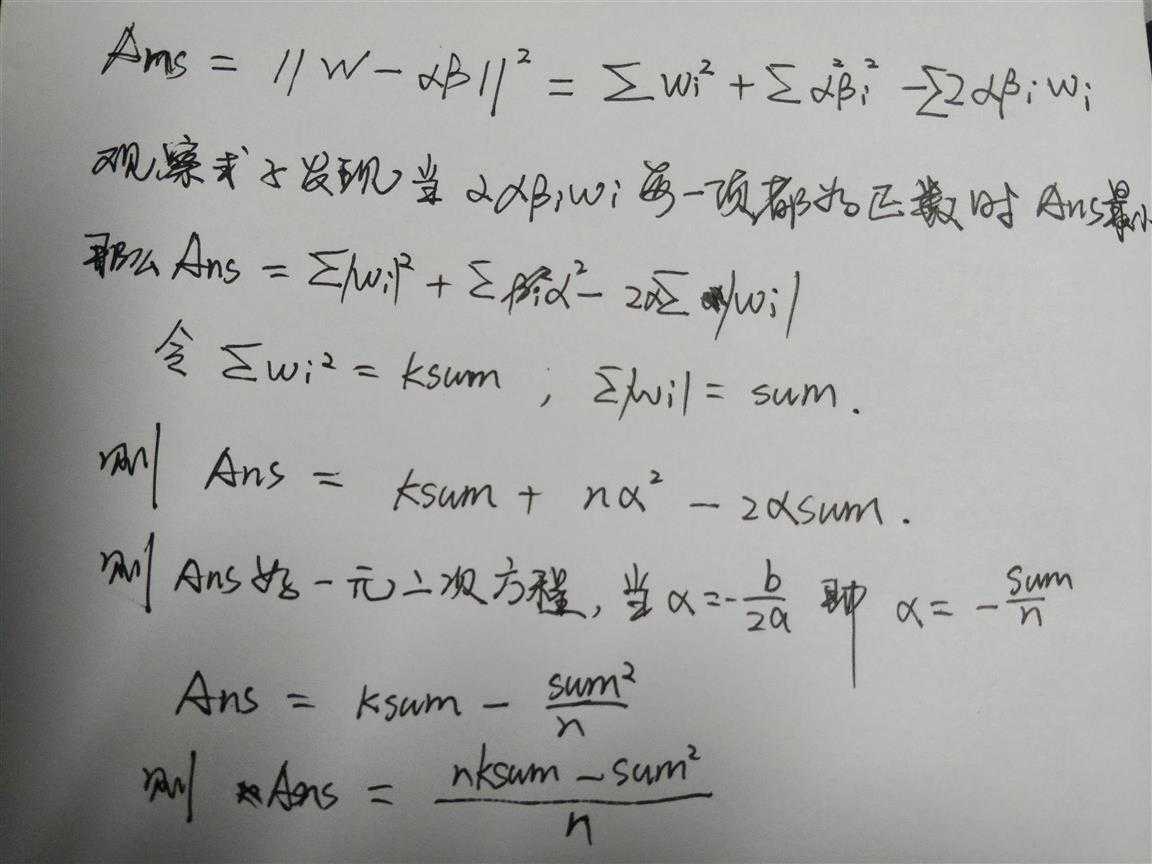 Ans = ||W - αβ||² = Σwi² + Σα²βi² - Σ2αβiwi
观察式子发现当 2αβiwi 每一项都为正数时 Ans最小
那么 Ans = Σ|wi|² + Σβi²α² - 2αΣ|wi|
令 Σwi² = ksum ; Σ|wi| = sum.
则 Ans = ksum + nα² - 2αsum.
则 Ans为一元二次方程, 当 α = -b/2a 即 α = -sum/n
Ans = ksum - sum²/n
则 Ans = (nksum - sum²)/n